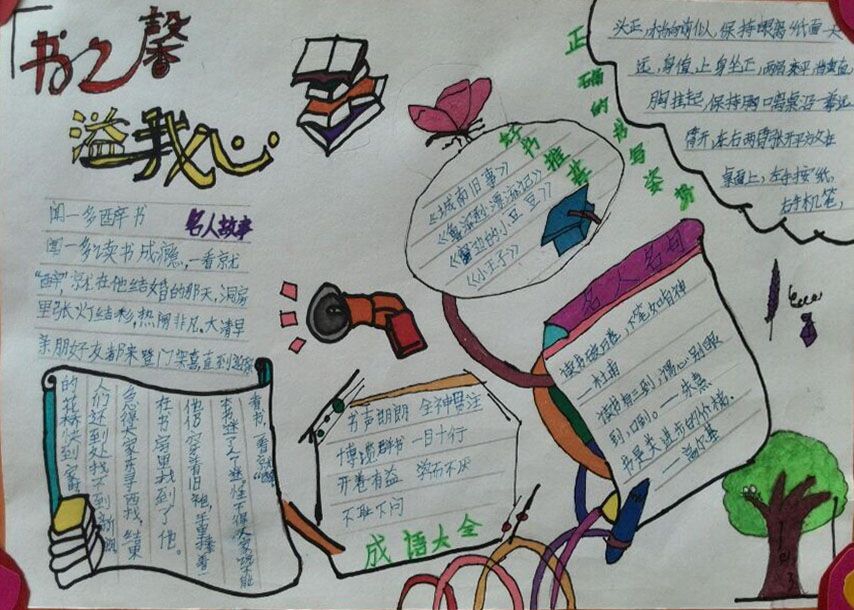 书之馨
溢我心
闻一多醉书
名人故事
闻一多读书成瘾,一看就
“醉”,就在他结婚的那天,洞房
里张灯结彩,热闹非凡。大清早
亲朋好友都来登门贺喜,直到迎亲
的花轿快到家
人们还到处找不到新郎
急得大家东寻西找,结果
在书房里找到了他。
他仍穿着旧袍,手里捧着一
本书迷了
看书,一看就“醉”
好书推荐
《城南旧事》
《格列佛漂流记》
《窗边的小豆豆》
《小王子》
正确的书写姿势
头正,稍向前似,保持眼离纸面一尺
远,身直,上身坐正,两肩亲平,
胸挂起,保持胸口离桌沿一拳远
臂开,左右两臂张开平方文在
桌面上,左手按纸,
右手机笔,
名人名句
读书破万卷,下笔如有神
—杜甫
读书有三到,谓心到眼
到口到。——朱熹
书是人类进步的阶梯。
——高尔基
书声朗朗 全神贯注
博览群书 一目十行
开卷有益 学而不厌
不耻下问
成语大全